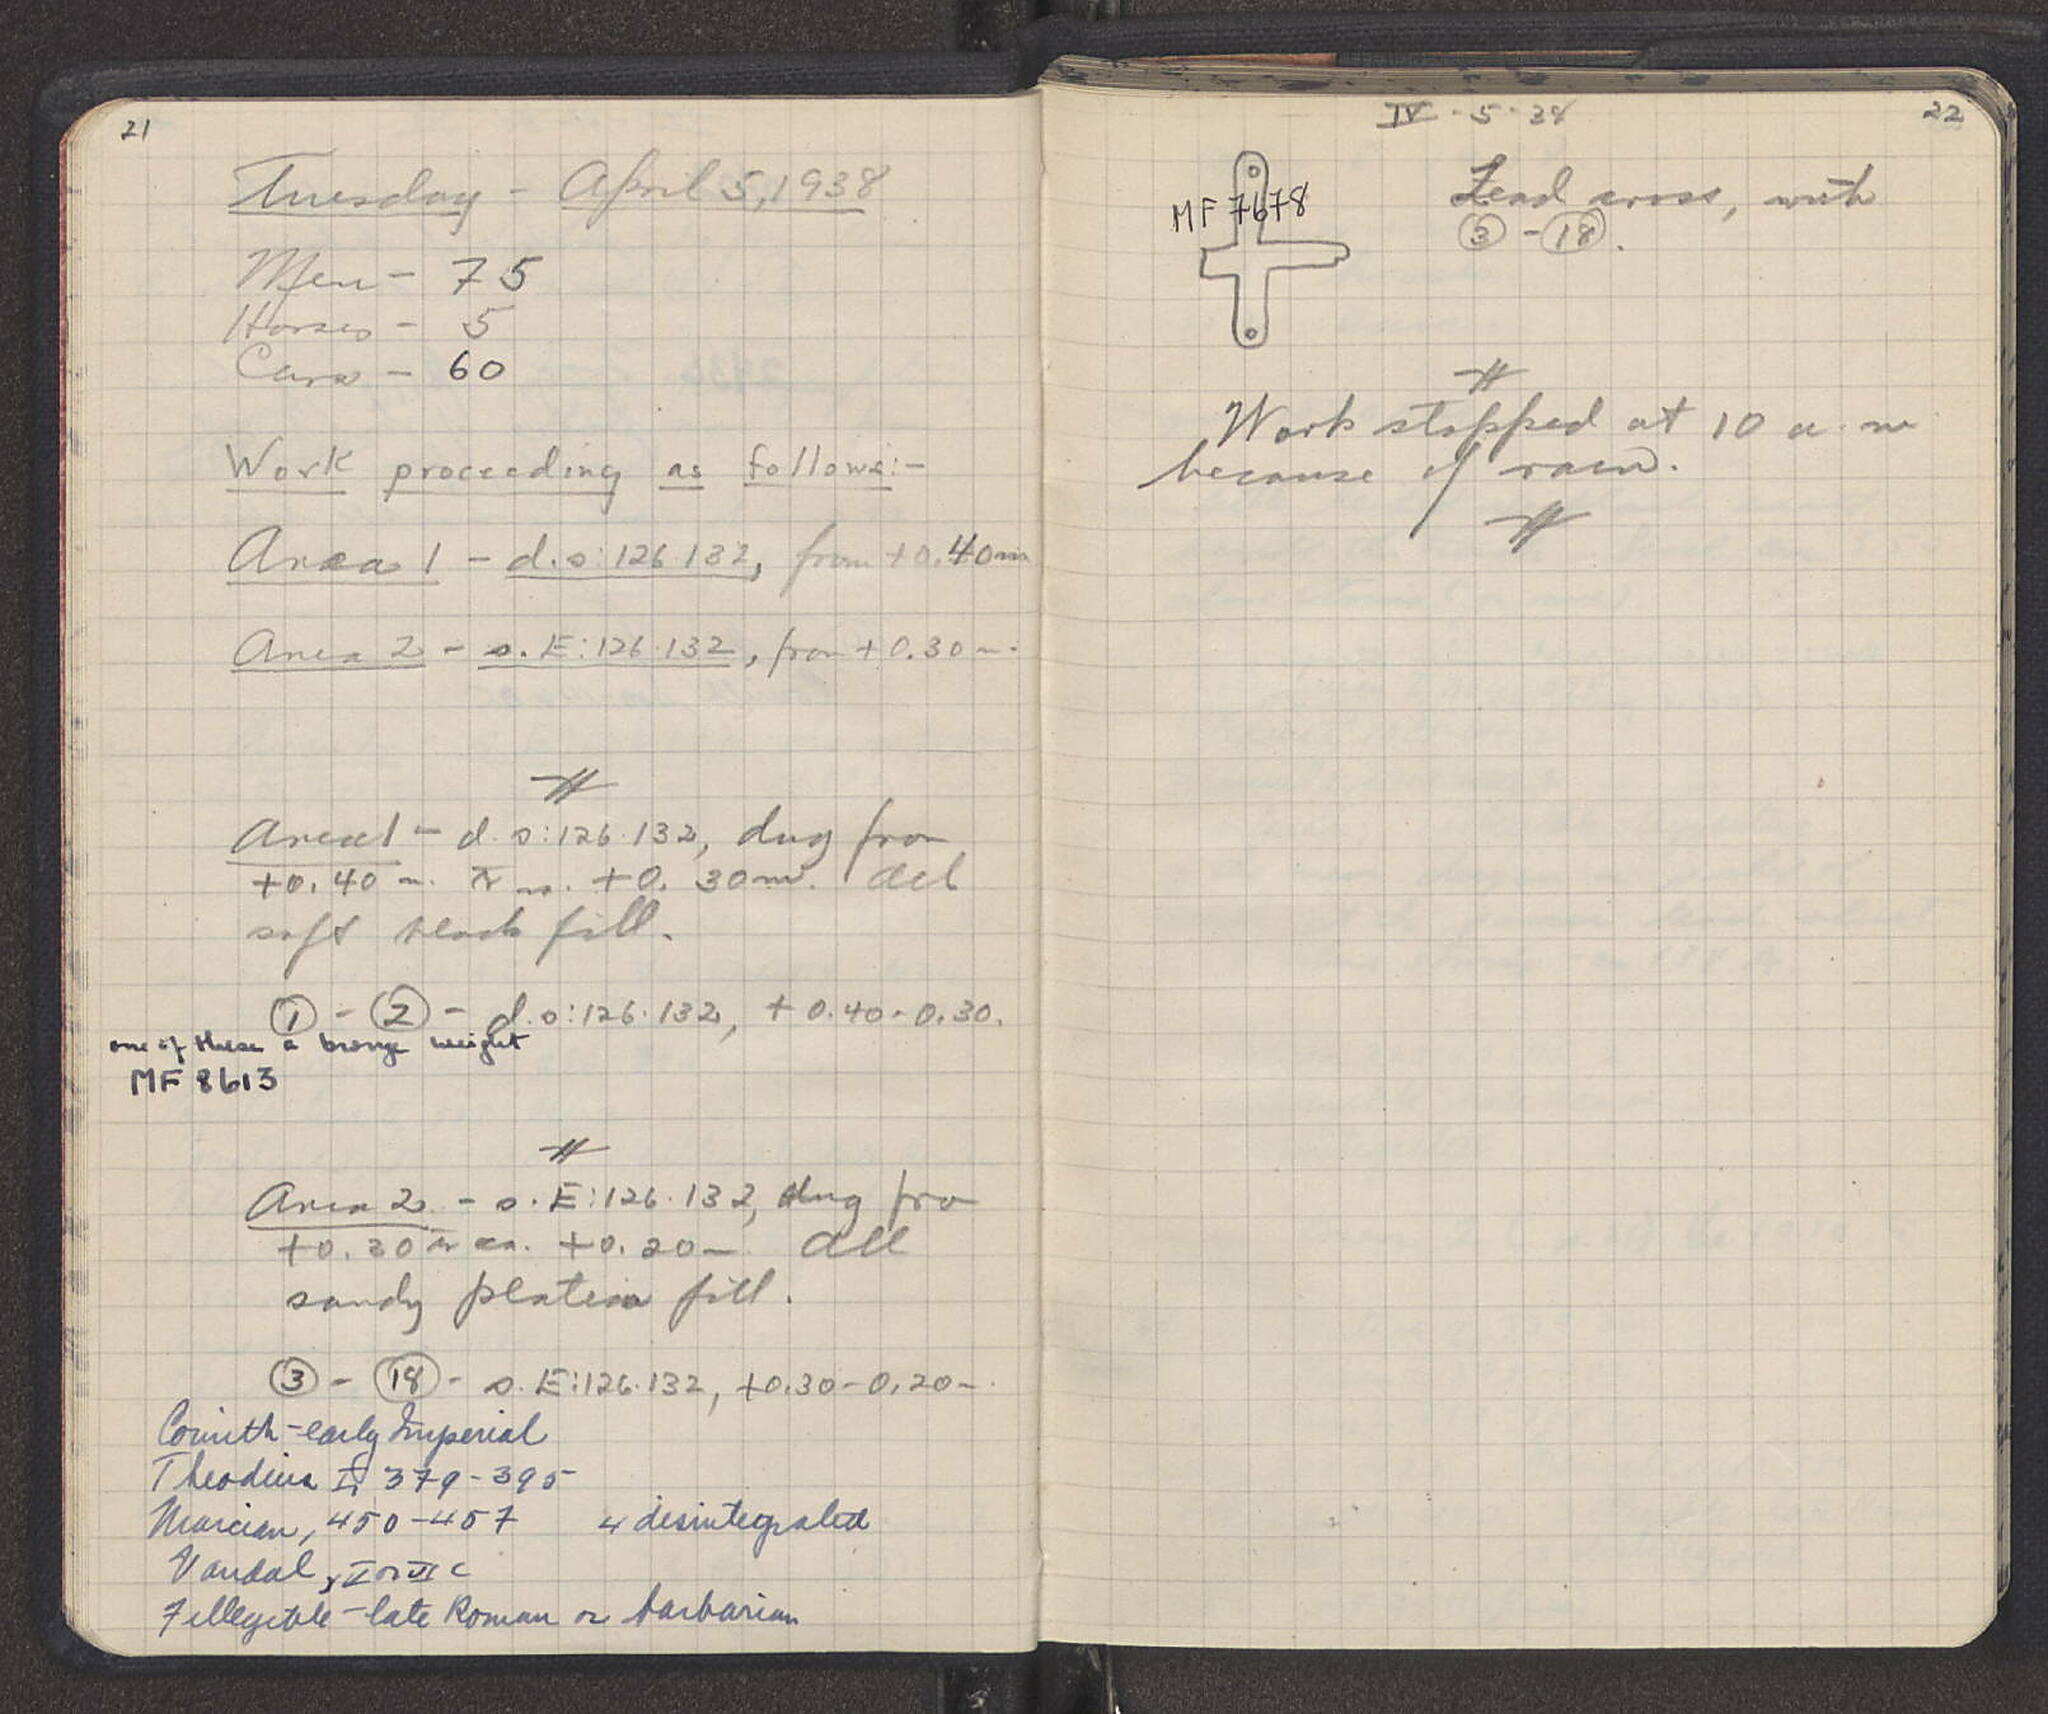 21
Tuesday - April 5, 1938
Men - 75
Horses - 5
Cars - 60
Work proceeding as follows:-
Area 1 - d.s:126.132, from +0.40m
Area 2 - s.E:126.132, from +0.30m.
Area 1 - d.s:126.132, dug from
+0.40 m. to ca. +0.30m. All
soft black fill.
1 - 2 - d.s:126.132, +0.40-0.30.
one of these a bronze weight
MF 8613
Area 2 - s.E:126.132, dug from
+0.30 to ca. +0.20m. All
sandy fill.
3 - 18 - s.E:126.132, +0.30-0.20m.
Corinth - early Imperial
Theodosius I, 379-395
Marcian, 450-457 4 disintegrated
Vandal, V or VI c
7 illegible - late Roman or barbarian
IV-5-38
22
MF 7678
Lead cross, with
3 - 18.
Work stopped at 10 a.m
because of rain.